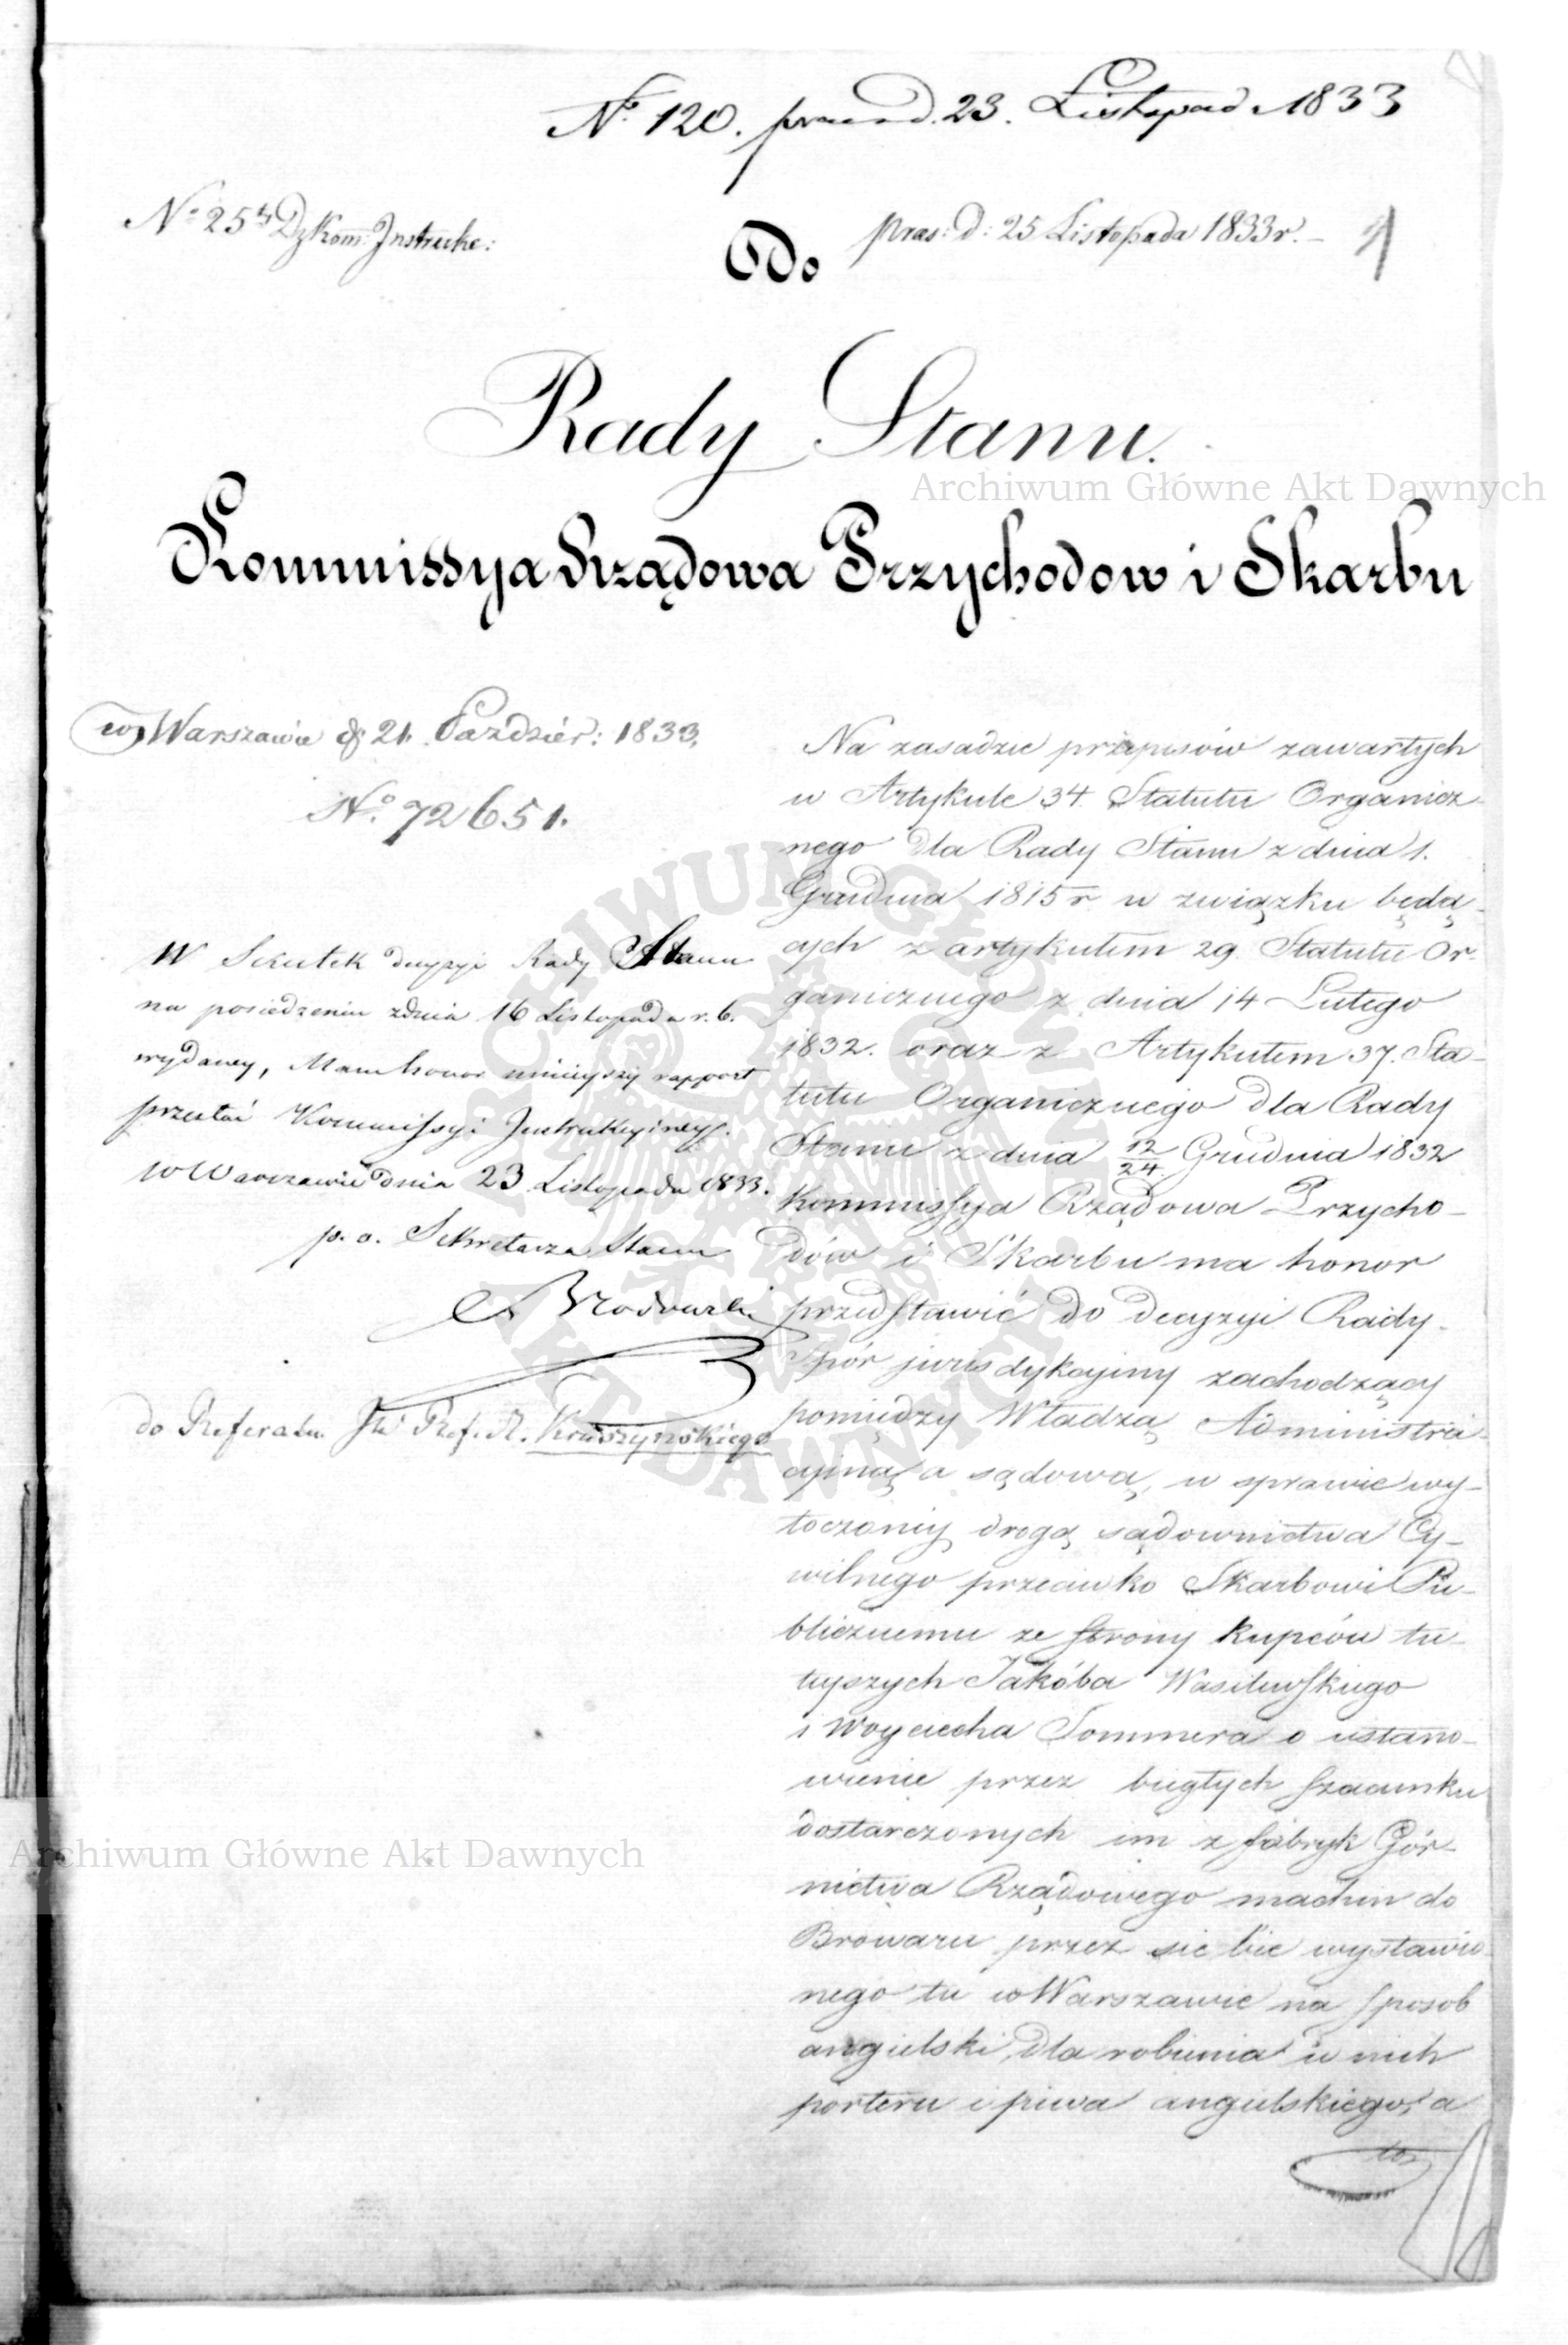 No 120. praes d. 23. Listopad 1833
No 25 Dz Kom: Instrukc:
praes: d: 25 Listopada 1833 r. –
1
Do
Rady Stanu.
Archiwum Główne Akt Dawnych
Kommissya Rządowa Przychodow i Skarbu
w Warszawie d 21. Paździer: 1833.
No. 72651.
W Skutek decyzyi Rady Stanu
na posiedzeniu z dnia 16 Listopada r. b.
wydaney, Mam honor ninieyszy rapport
przesłać Kommissyi Instrukcyiney.
w Warszawie dnia 23 Listopada 1833.
p. o. Sekretarza Stanu
Brodowski
do Referatu JW Ref. St. Kruszyńskiego
Na zasadzie przepisów zawartych
w Artykule 34. Statutu Organicz-
nego dla Rady Stanu z dnia 1.
Grudnia 1815 r w związku będą-
cych z artykułem 29. Statutu Or-
ganicznego z dnia 14 Lutego
1832. oraz z Artykułem 37. Sta-
tutu Organicznego dla Rady
Stanu z dnia 12/24 Grudnia 1832
Kommissya Rządowa Przycho-
dów i Skarbu ma honor
przedstawić do decyzyi Rady.
Spór jurisdykcyiny zachodzący
pomiędzy Władzą Administra-
cyiną a sądową, w sprawie wy-
toczoney drogą sądownictwa Cy-
wilnego przeciwko Skarbowi Pu-
blicznemu ze strony kupców tu-
teyszych Jakóba Wasilewskiego
i Woyciecha Sommera o ustano-
wienie przez biegłych szacunku
dostarczonych im z fabryk Gór-
nictwa Rządowego machin do
Browaru przez siebie wystawio-
nego tu w Warszawie na sposob
angielski, dla robienia w nich
porteru i piwa angielskiego, a
to
ARCHIWUM GŁÓWNE
AKT DAWNYCH
Archiwum Główne Akt Dawnych